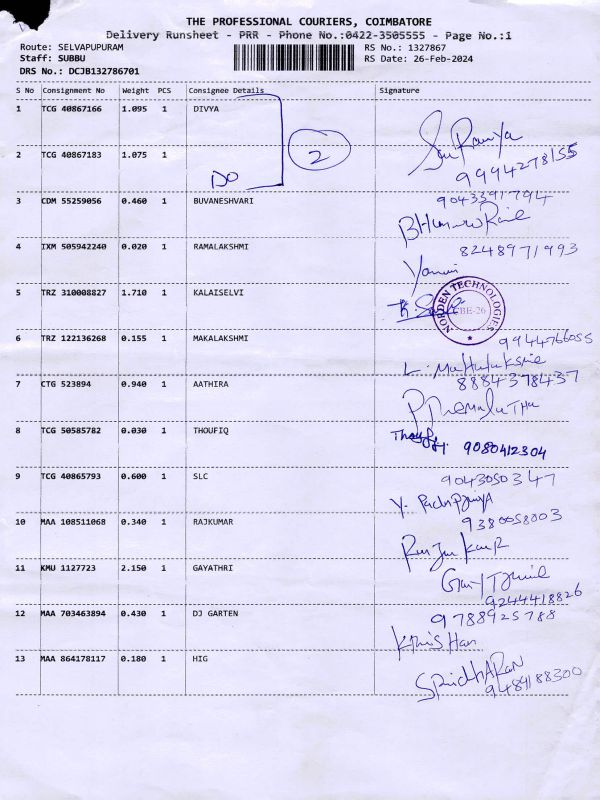 THE PROFESSIONAL COURIERS, COIMBATORE
Delivery Runsheet - PRR - Phone No.:0422-3505555 - Page No.:1
Route: SELVAPUPURAM RS No.: 1327867
Staff: SUBBU RS Date: 26-Feb-2024
DRS No.: DCJB132786701
S No Consignment No Weight PCS Consignee Details Signature
1 TCG 40867166 1.095 1 DIVYA
2
2 TCG 40867183 1.075 1
DO
9994278155
3 CDM 55259056 0.460 1 BUVANESHVARI 9043391794
4 IXM 505942240 0.020 1 RAMALAKSHMI 8248971993
5 TRZ 310008827 1.710 1 KALAISELVI
NORDEN TECHNOLOGIES
CBE-26
6 TRZ 122136268 0.155 1 MAKALAKSHMI 9944766055
7 CTG 523894 0.940 1 AATHIRA 8884378437
8 TCG 50585782 0.030 1 THOUFIQ
9080412304
9 TCG 40865793 0.600 1 SLC 9043050347
10 MAA 108511068 0.340 1 RAJKUMAR 9380058003
11 KMU 1127723 2.150 1 GAYATHRI
9244418826
12 MAA 703463894 0.430 1 DJ GARTEN 9788925788
13 MAA 864178117 0.180 1 HIG
9489188300